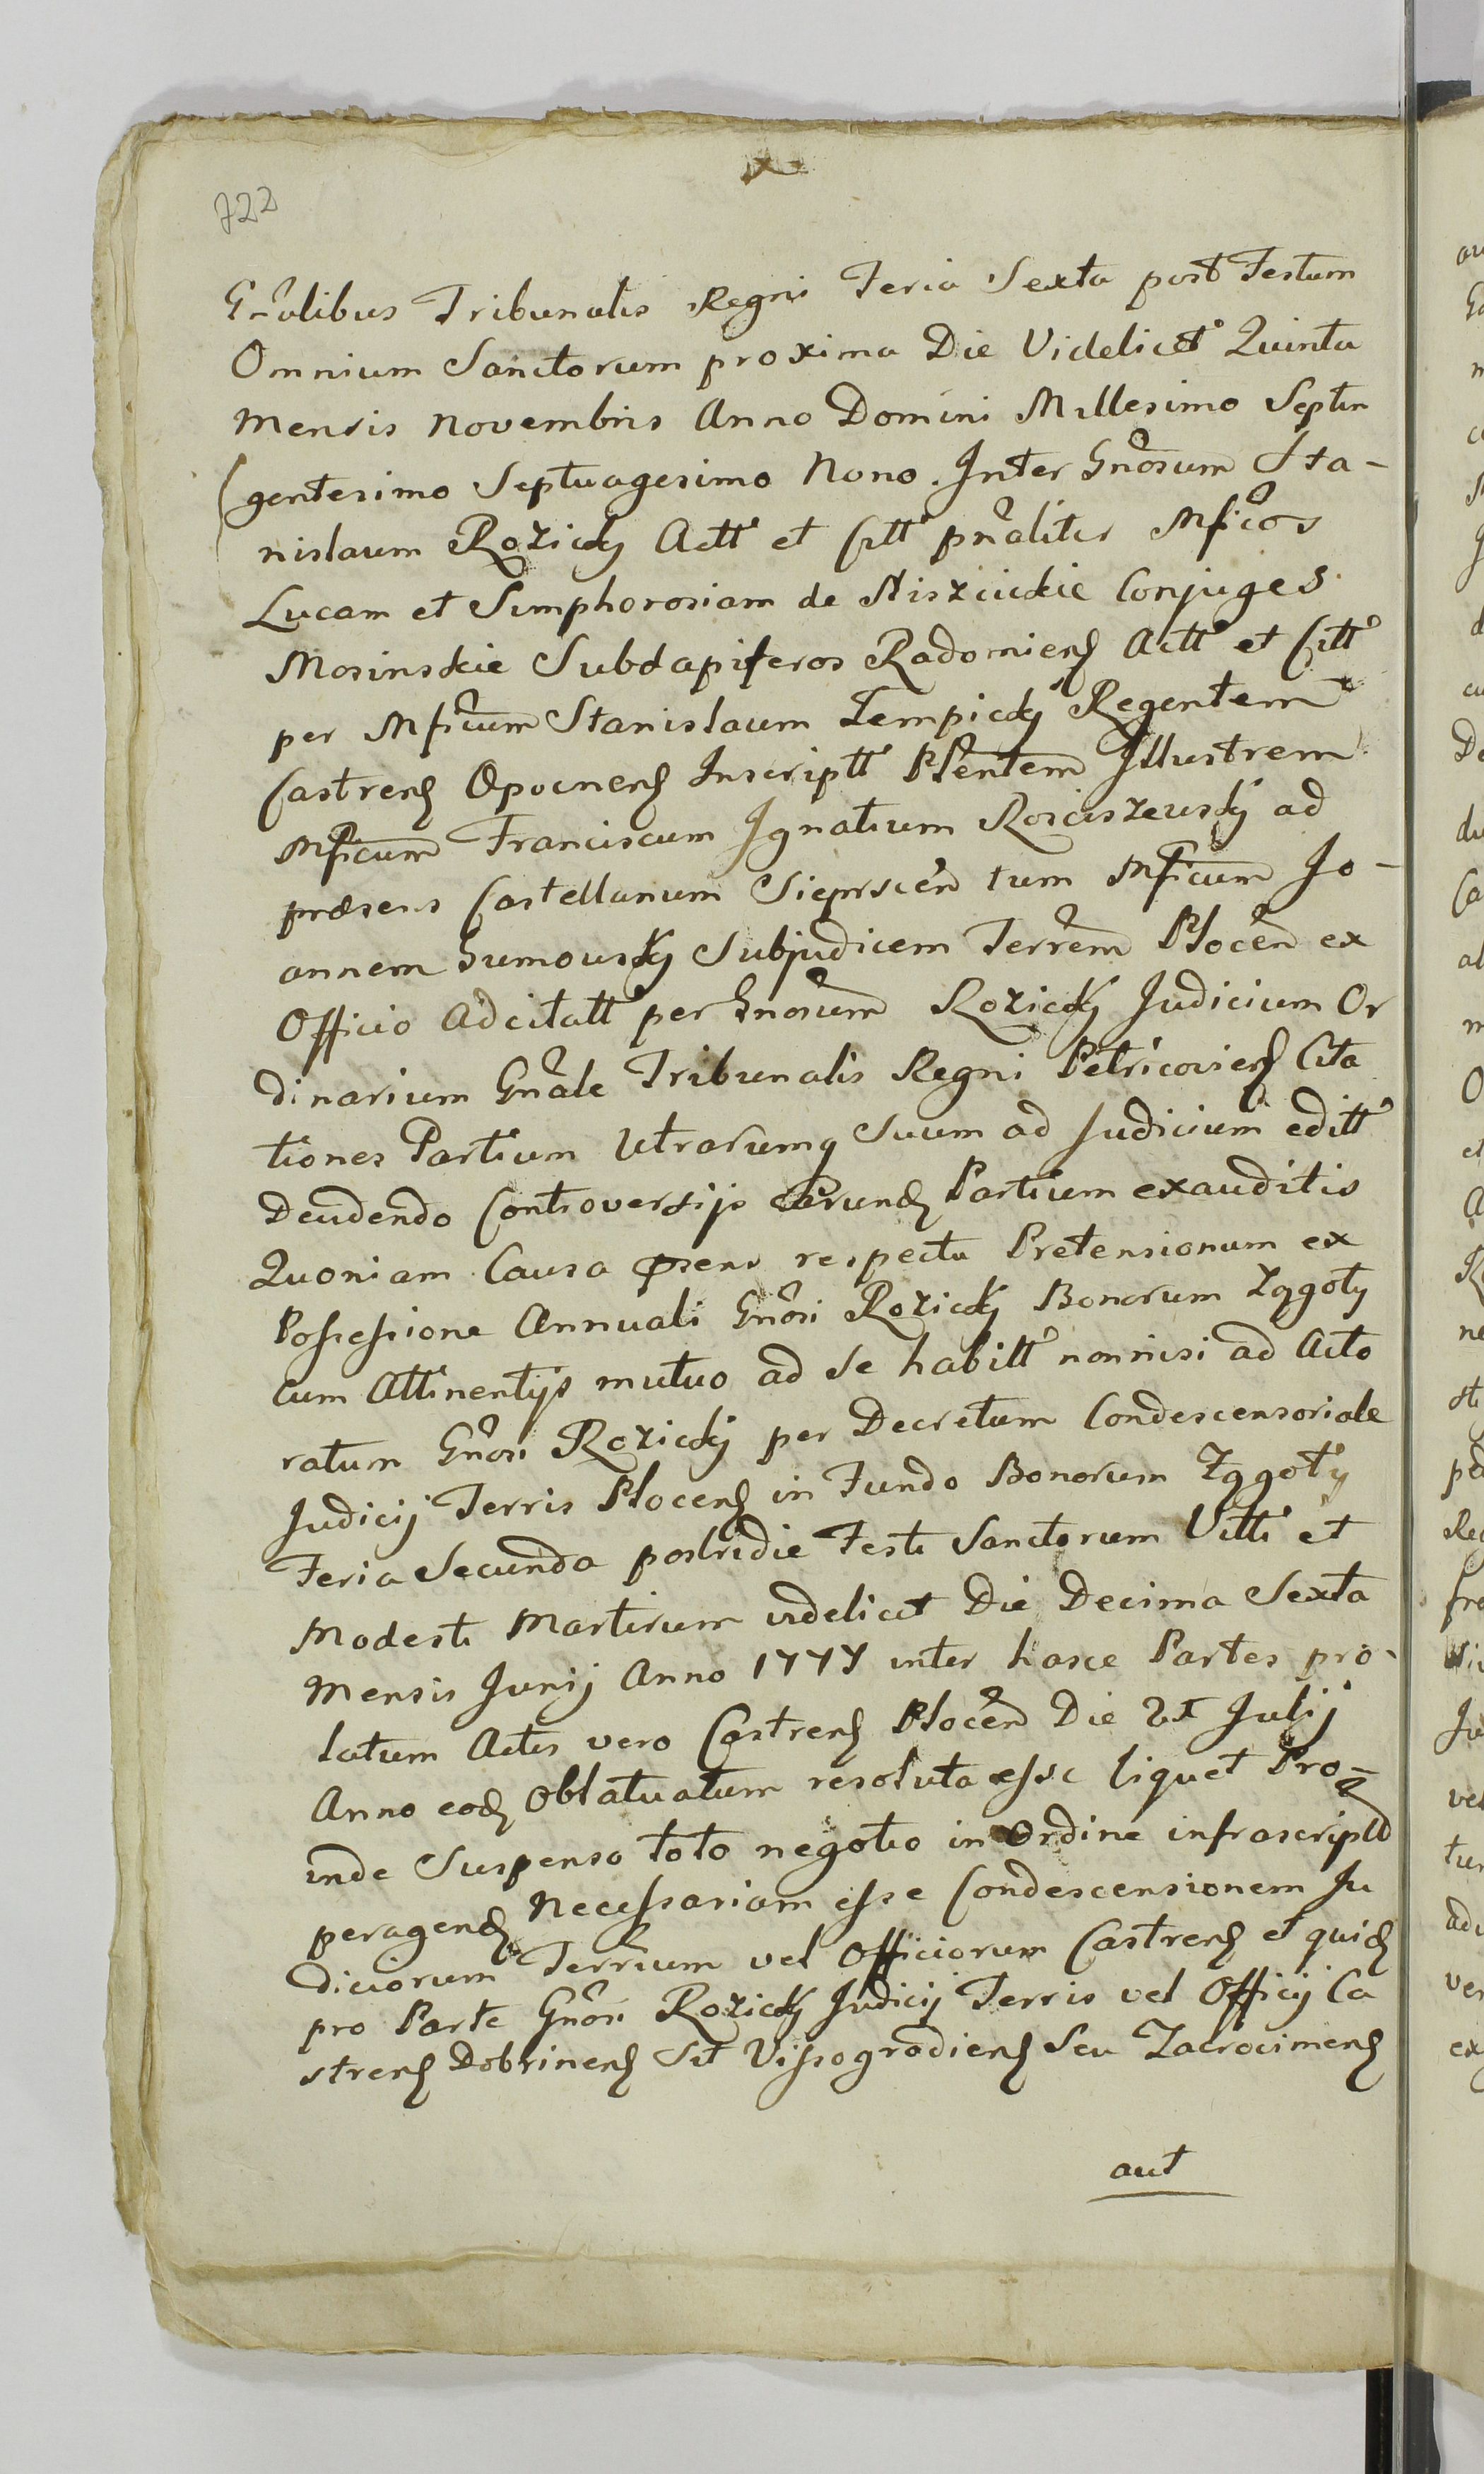 722
Gnãlibus Tribunalis Regni Feria Sexta post Festum
Omnium Sanctorum proxima Die Videlicet Quinta
Mensis Novembris Anno Domini Millesimo Septin
gentesimo Septuagesimo Nono. Inter Gnõsum Sta-
nislaum Rozicky Actt et Citt pnãliter Mficos
Lucam et Simphorosiam de Niszcickie Conjuges
Mosinskie Subdapiferos Radomiens Actt et Citt
per Mficum Stanislaum Lempicky Regentem
Castrens Opocnens Inscriptt Plentem Illustrem
Mficum Franciscum Ignatium Rosciszewsky ad
præsens Castellanum Sieprscen tum Mficum Jo-
annem Gumowsky Subjudicem Terrem Plocen ex
Officio Adcitatt per Gnosum Rozicky Judicium Or
dinarium Gnãle Tribunalis Regni Petricoviens Cita
tiones Partium Utrarumq Suum ad Judicium editt
Deudendo Controversijs earund Partium exauditis
Quoniam Causa præsens respectu Pretensionum ex
Possessione Annuali Gnõsi Rozicky Bonorum Zggoty
cum Attinentijs mutuo ad se habitt nonnisi ad Acto
ratum Gnõsi Rozicky per Decretum Condescensoriale
Judicij Terris Plocens in Fundo Bonorum Zggoty
Feria Secunda postridie Festi Sanctorum Viti et
Modesti Martirum videlicet Die Decima Sexta
Mensis Junij Anno 1777 inter hasce Partes pro-
latum Actis vero Castrens Plocen Die 21 Julij
Anno eod Oblatuatum resoluta esse liquet Pro-
inde Suspenso toto negotio in Ordine infrascriptt
peragend Necessariam esse Condescensionem Ju
diciorum Terrium vel Officiorum Castrens et quid
pro Parte Gnõsi Rozicky Judicij Terris vel Officij Ca
strens Dobrinens Sit Vissogradiens Seu Zacrocimens
aut